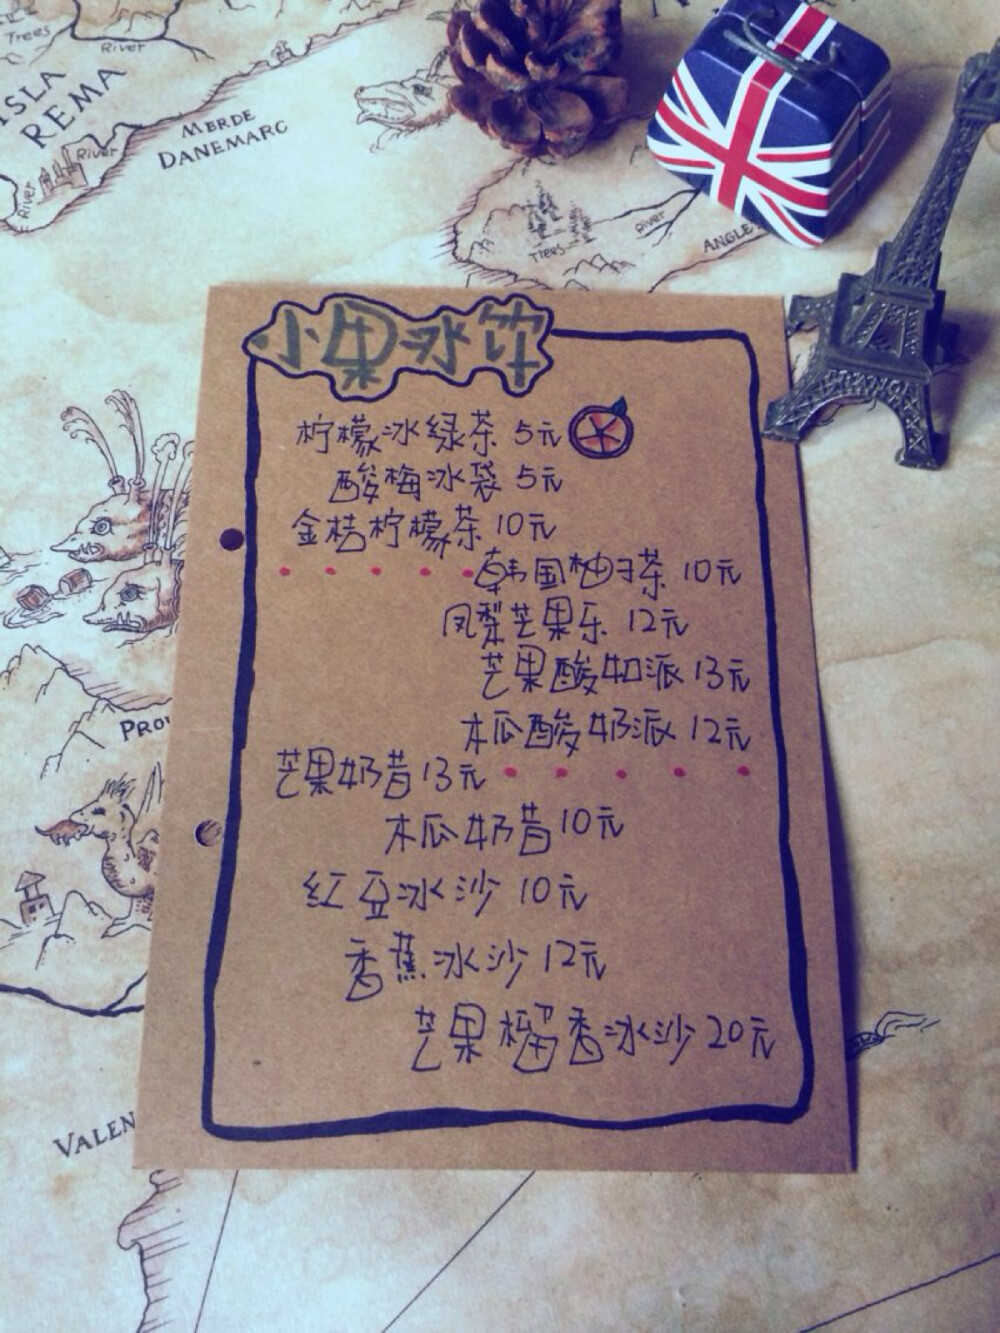 Trees
River
ISLA
REMA
MERDE
DANEMARC
River
River
River
Trees
ANGLE
小果冰饮
柠檬冰绿茶 5元
酸梅冰袋 5元
金桔柠檬茶 10元
韩国柚子茶 10元
凤梨芒果乐 12元
芒果酸奶派 13元
木瓜酸奶派 12元
PROV
芒果奶昔 13元
木瓜奶昔 10元
红豆冰沙 10元
香蕉冰沙 12元
芒果榴香冰沙 20元
VALEN